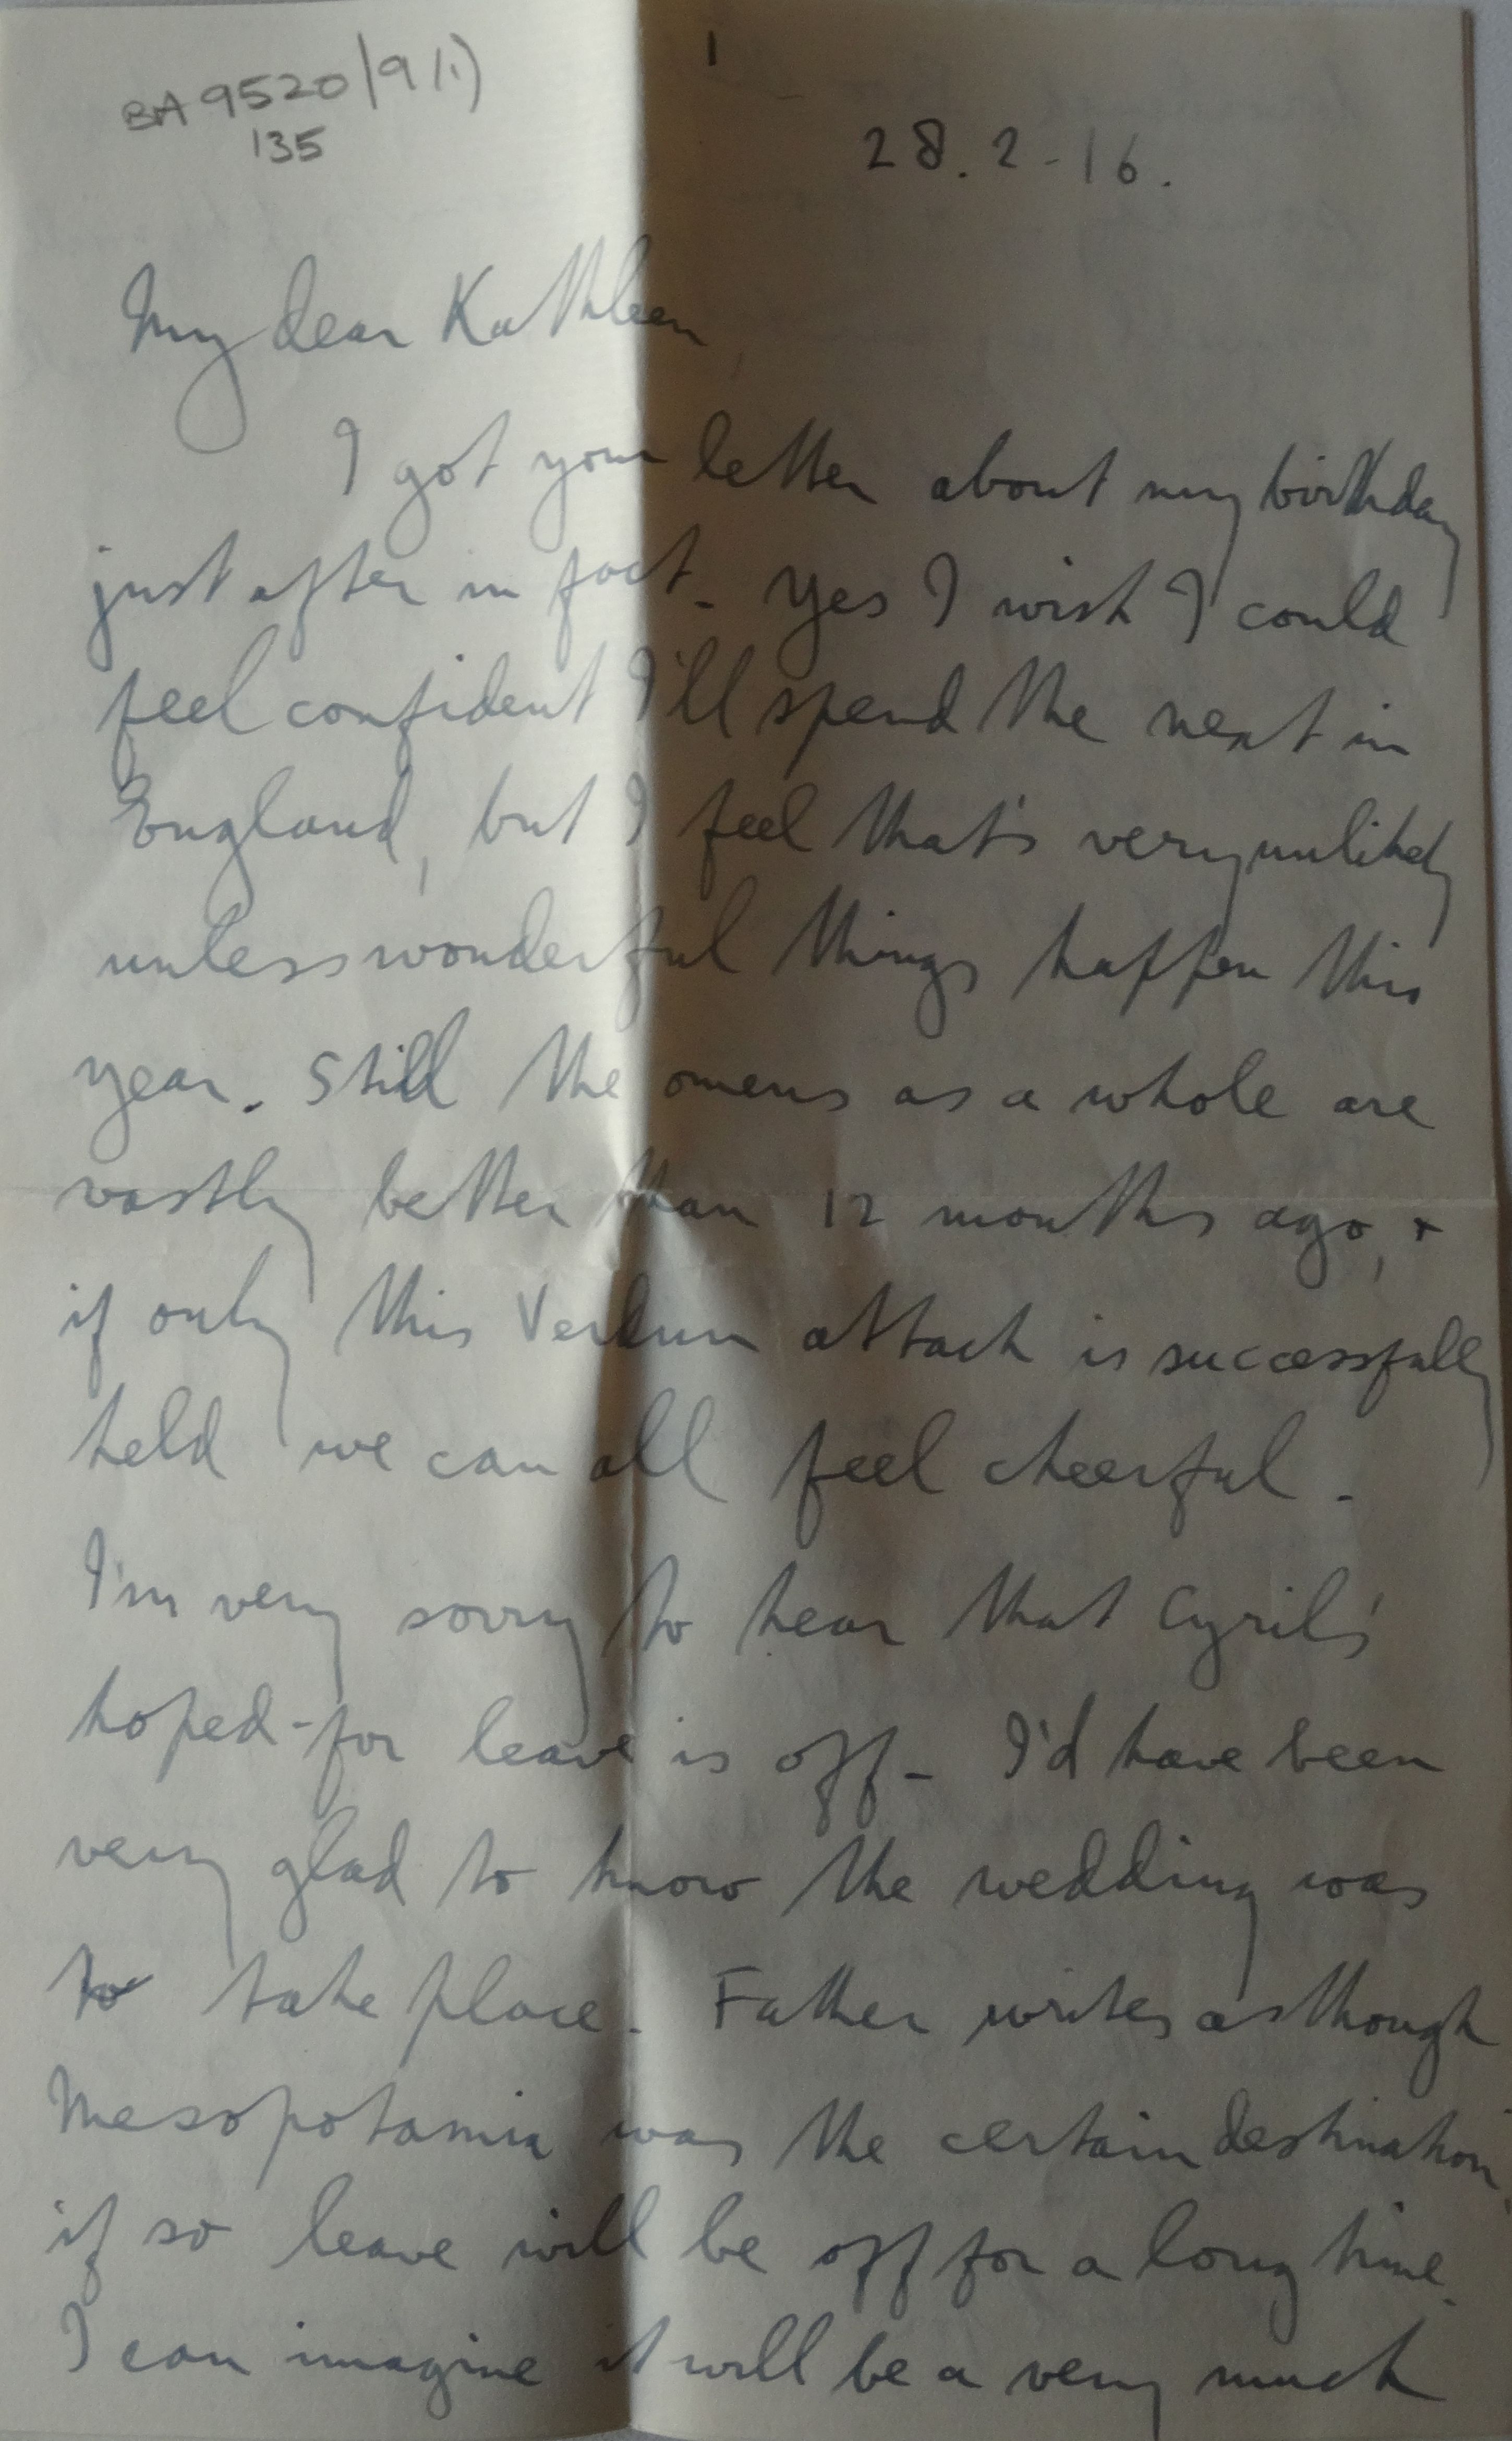 BA 9520/9(1)
135
1
28.2-16.
My dear Kathleen,
I got your letter about my birthday
just after in fact - yes I wish I could
feel confident I'll spend the next in
England, but I feel that's very unlikely
unless wonderful things happen this
year. Still the omens as a whole are
vastly better than 12 months ago, +
if only this Verdun attack is successfully
held we can all feel cheerful.
I'm very sorry to hear that Cyril's
hoped-for leave is off - I'd have been
very glad to know the wedding was
to take place. Father writes as though
Mesopotamia was the certain destination,
if so leave will be off for a long time.
I can imagine it will be a very much